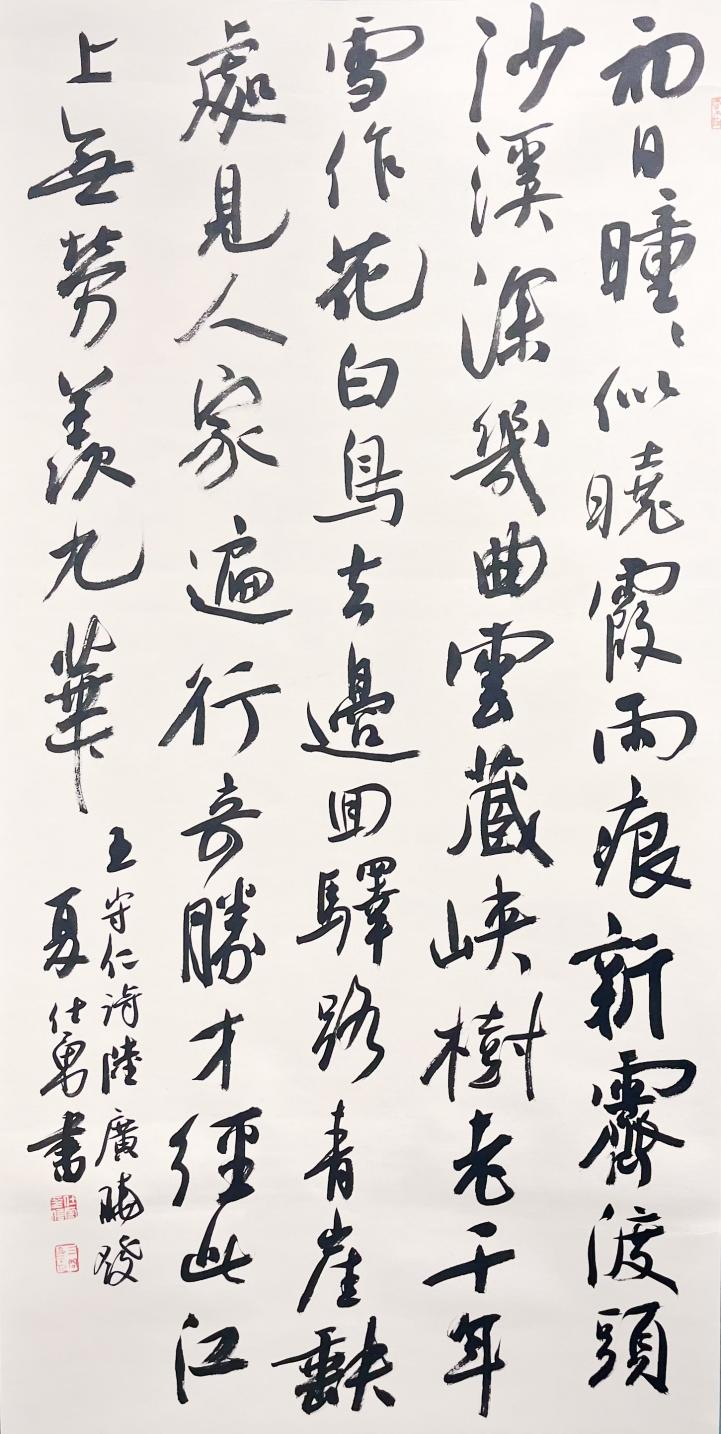 初日曈〻似曉霞雨痕新霽渡頭
沙溪深幾曲雲藏峽樹老千年
雪作花白鳥去邊回驛路青崖缺
處見人家遍行奇勝才經此江
上無勞羨九華
王守仁詩陸廣曉發
夏仕勇書